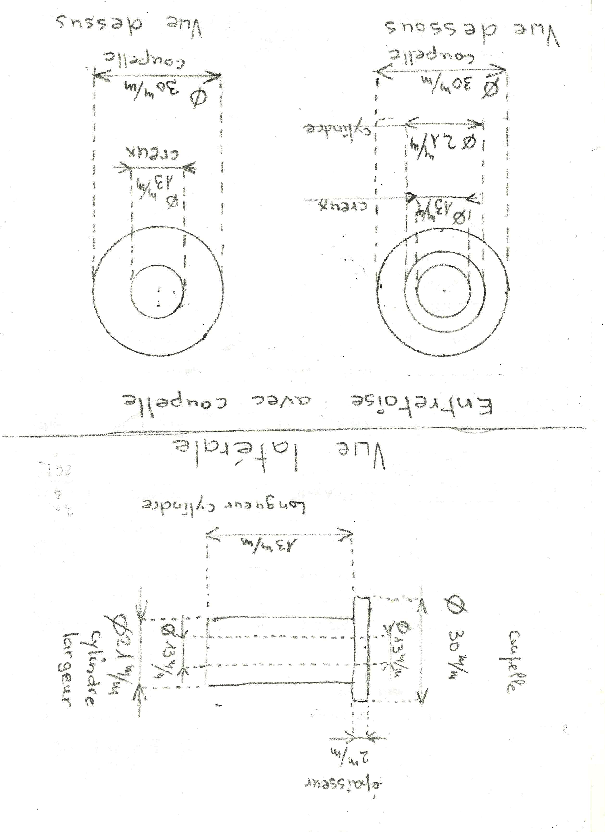 épaisseur
2 m/m
coupelle
Ø 30 m/m
Ø 13 m/m
Ø 13 m/m
Ø 21 m/m
cylindre
largeur
13 m/m
Longueur cylindre
Vue latérale
Entretoise avec coupelle
Ø 13 m/m
creux
Ø 21 m/m
cylindre
Ø 30 m/m
coupelle
Vue dessous
Ø
13 m/m
creux
Ø
30 m/m
coupelle
Vue dessus